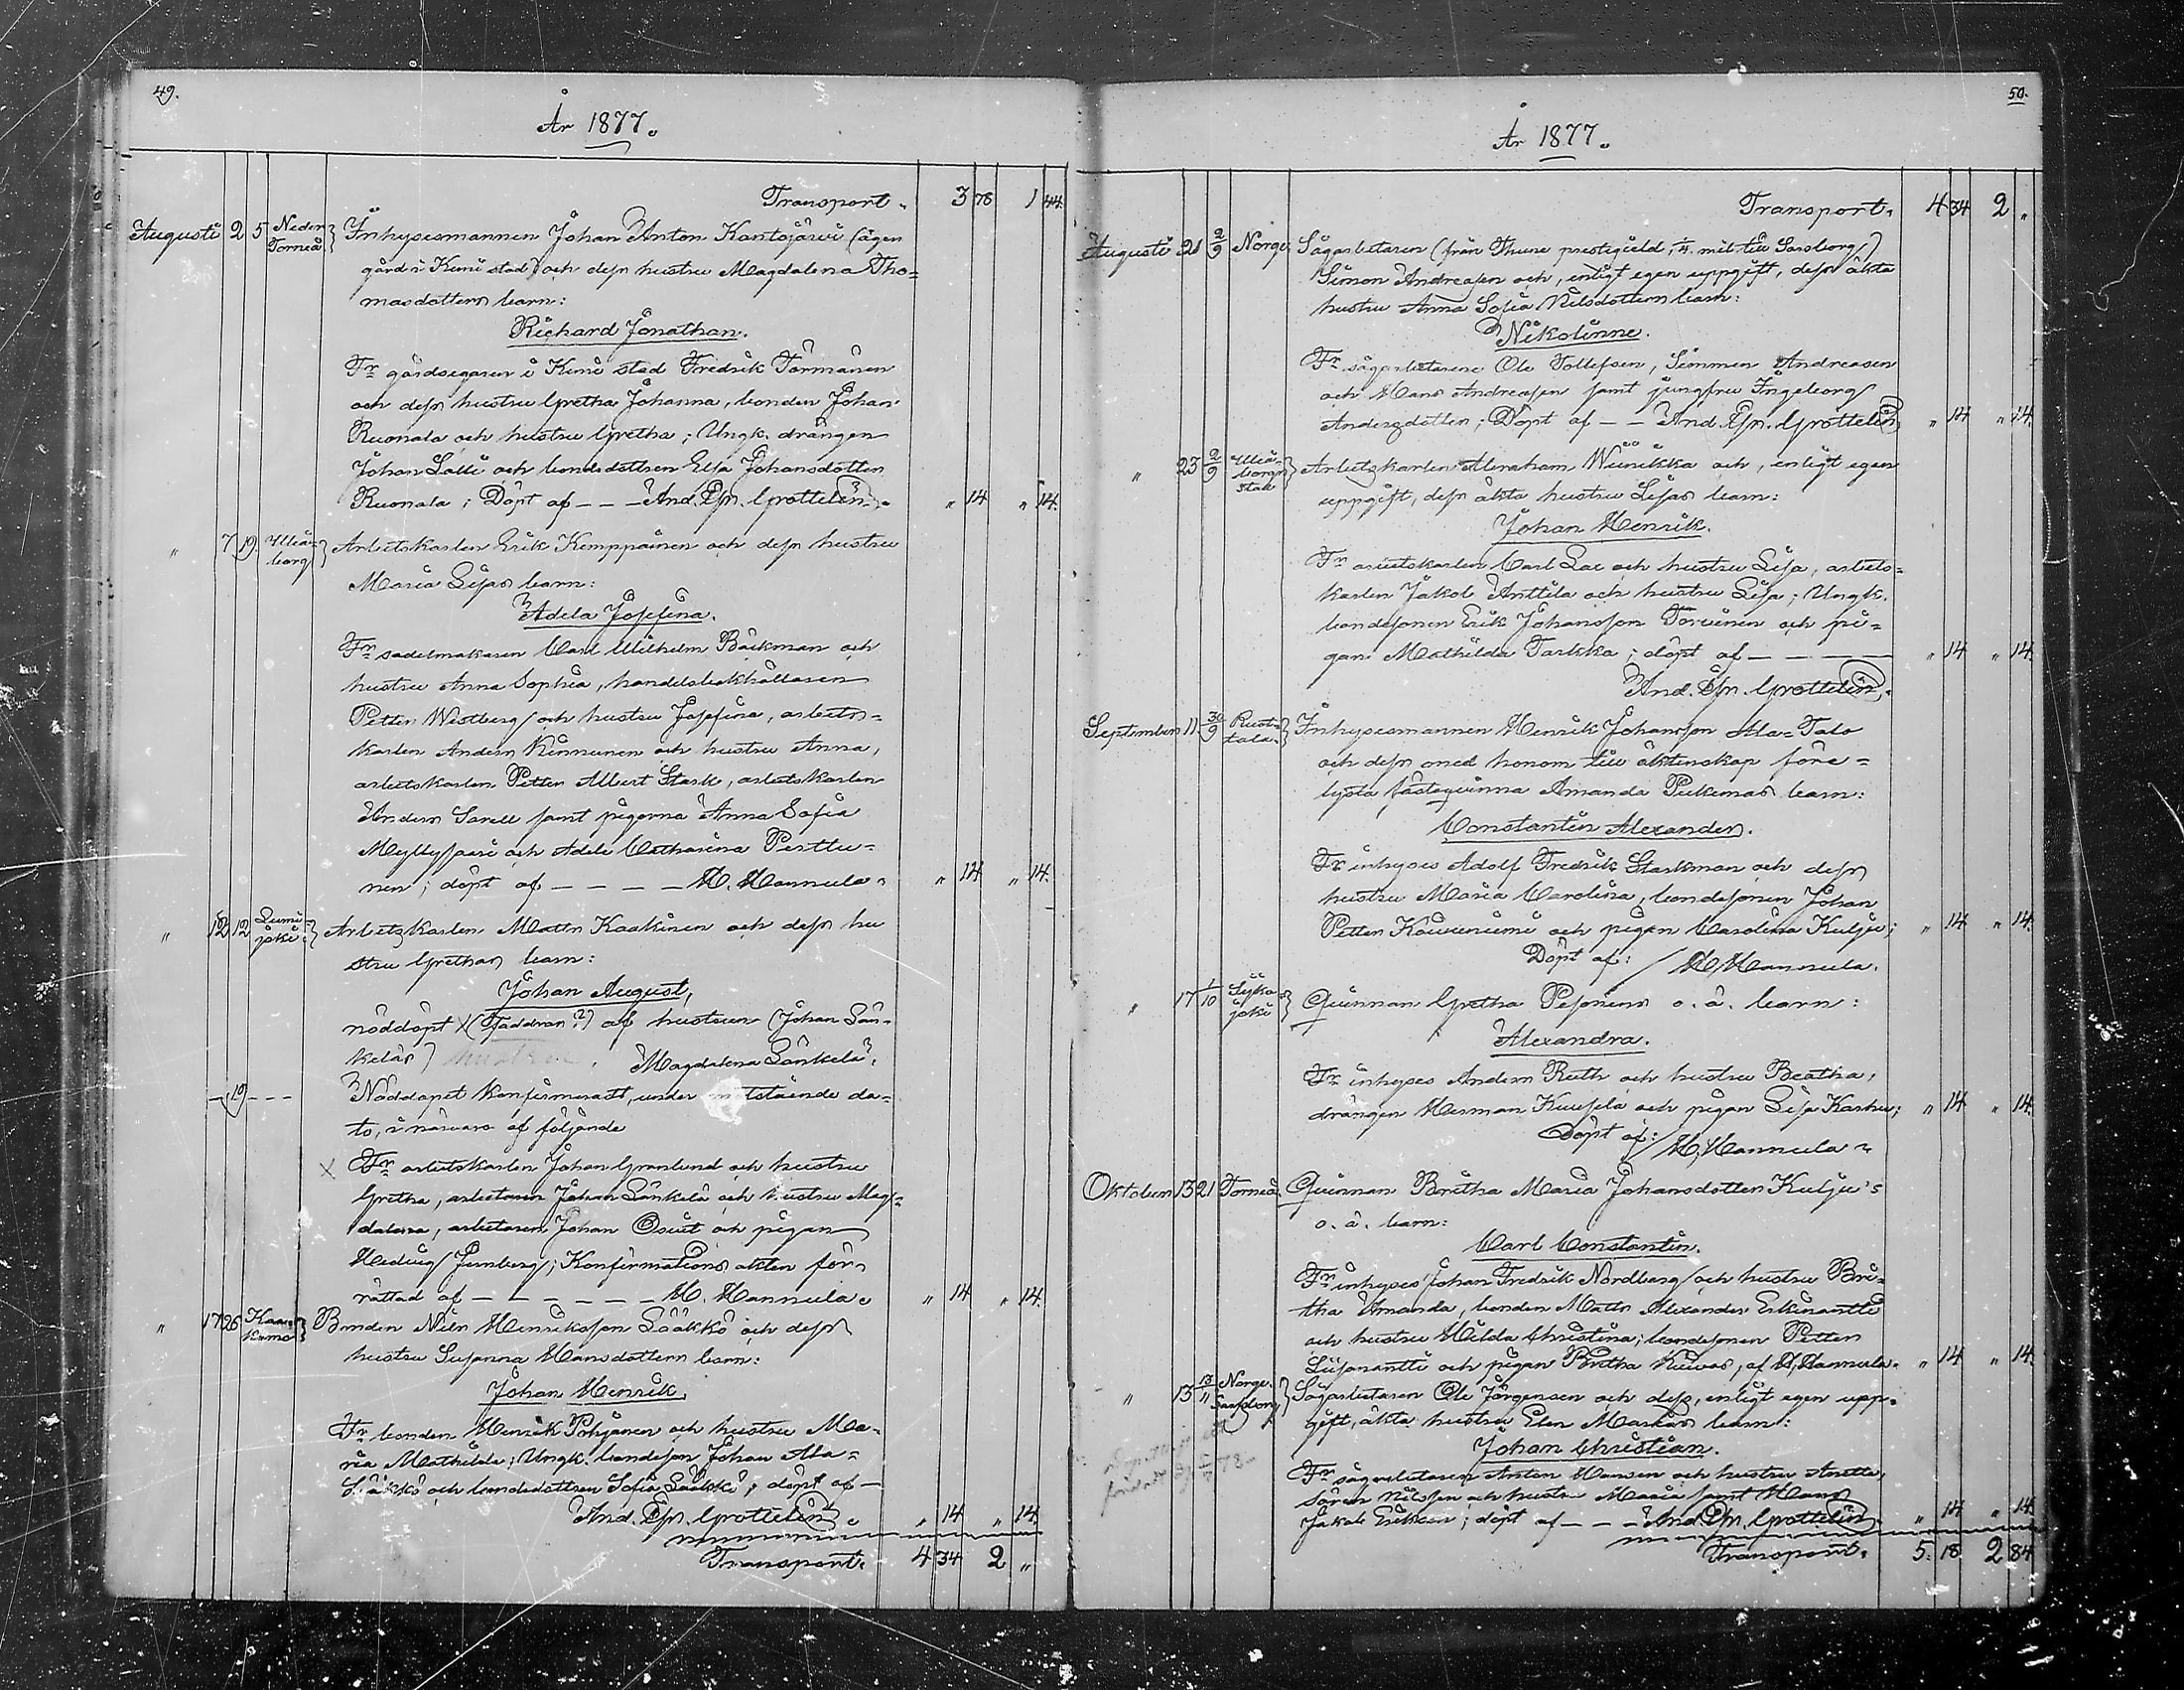 49.
År 1877.
Transport. 3 78 1 44.
Augusti 2 5 Neder Torneå } Inhysesmannen Johan Anton Kantojärvi (ägen
gård i Kemi stad) och dess hustru Magdalena Tho-
masdotters barn:
Richard Jonathan.
Fr gårdsegaren i Kemi stad Fredrik Törmänen
och dess hustru Gretha Johanna, bonden Johan
Ruonala och hustru Gretha; Ungk. drängen
Johan Lalli och bondedottren Elsa Johansdotter
Ruonala; Döpt af - - - And. Joh. Grottelin. " 14 " 14.
" 7 19. Uleå-borg } Arbetskarlen Erik Kemppainen och dess hustru
Maria Lisas barn:
Adela Josefina.
Fr sadelmakaren Carl Wilhelm Bäckman och
hustru Anna Sophia, handelsbokhållaren
Petter Westberg och hustru Josefina, arbets-
karlen Anders Kinnunen och hustru Anna,
arbetskarlen Petter Albert Stark, arbetskarlen
Anders Sarell samt pigorna Anna Sofia
Myllykari och Adele Catharina Perttu-
nen; döpt af - - - - H. Hannula. " 14 " 14.
" 12 12 Lumi-joki } Arbetskarlen Matts Kaakinen och dess hu
stru Grethas barn:
Johan August,
nöddöpt X (Faddran?) af hustrun (Johan Län-
kelas) hustru. Magdalena Länkelä.
- 19 - - - Nöddopet konfirmeradt, under motstående da-
to, i närvaro af följande
X Fr arbetskarlen Johan Granlund och hustru
Gretha, arbetaren Johan Länkelä och hustru Mag-
dalena, arbetaren Johan och pigan
Hedvig Jernberg; Konfirmations akten för-
rättad af - - - - - - H. Hannula. " 14 " 14.
" 17 26 } Bonden Nils Henriksson Sääkkö och dess
hustru Susanna Hansdotters barn:
Johan Henrik.
Fr bonden Henrik Pohjanen och hustru Ma-
ria Mathilda; Ungk. bondeson Johan Ala-
Sääkkö och bondedottren Sofia Sääkkö; döpt af -
And. Joh. Grottelin. " 14 " 14
Transport. 4 34 2 "
50.
År 1877.
Transport. 4 34 2 "
Augusti 21 2/9 Norge Sågarbetaren (från Thune prestegield, 1/4. mil till Sarsborg)
Simon Andreasen och, enligt egen uppgift, dess äkta
hustru Anna Sofia Nilsdotters barn:
Nikolinne.
Fr sågarbetarene Ole Tollefsen, Simmen Andreasen
och Hans Andreasen samt jungfru Ingeborg
Andersdotter; Döpt af - - And. Joh. Grottelin " 14 " 14.
" 23 2/9 Uleå-borgs stad } Arbetskarlen Abraham Wiinikka och, enligt egen
uppgift, dess äkta hustru Lisas barn:
Johan Henrik.
Fr arbetskarlen Carl Lax och hustru Lisa, arbets-
karlen Jakob Anttila och hustru Lisa; Ungk.
bondesonen Erik Johansson Torvinen och pi-
gan Mathilda Tarkka; döpt af - - - - " 14 " 14.
And. Joh. Grottelin.
September 11 30/9 } Inhysesmannen Henrik Johansson Ala-Talo
och dess med honom till äktenskap före-
lysta fästeqvinna Amanda barn:
Constantin Alexander.
Fr inhyses Adolf Fredrik Starkman och dess
hustru Maria Carolina, bondesonen Johan
Petter Kauvuniemi och pigan Carolina Kulju; " 14 " 14.
Döpt af: H Hannula.
" 17 1/10 Sijka-joki } Qvinnan Gretha Pesonens o. ä. barn:
Alexandra.
Fr inhyses Anders Ruth och hustru Beatha,
drängen Herman Kuusela och pigan Lisa Karhu; " 14 " 14.
Döpt af: H, Hannula.
Oktober 13 21 Torneå. Qvinnan Britha Maria Johansdotter Kulju's
o. ä. barn:
Carl Constantin.
Fr inhyses Johan Fredrik Nordberg och hustru Bri-
tha Amanda, bonden Matts Alexander Erkinantti
och hustru Hilda Christina; bondesonen Petter
Liisanantti och pigan Britha Kuivas, af H, Hannula. " 14 " 14.
" 13 13/11 Norge. Sarpsborg } Sågarbetaren Ole Jörgensen och dess, enligt egen upp-
gift, äkta hustru Elen Marias barn:
Johan Christian.
Fr sågarbetaren Anton Hansen och hustru Anette,
Sören Nilssen och hustru Maria samt Hans
Jakob Eriksen; döpt af - - - And. Joh. Grottelin. " 14 " 14.
Transport. 5. 18 2 84